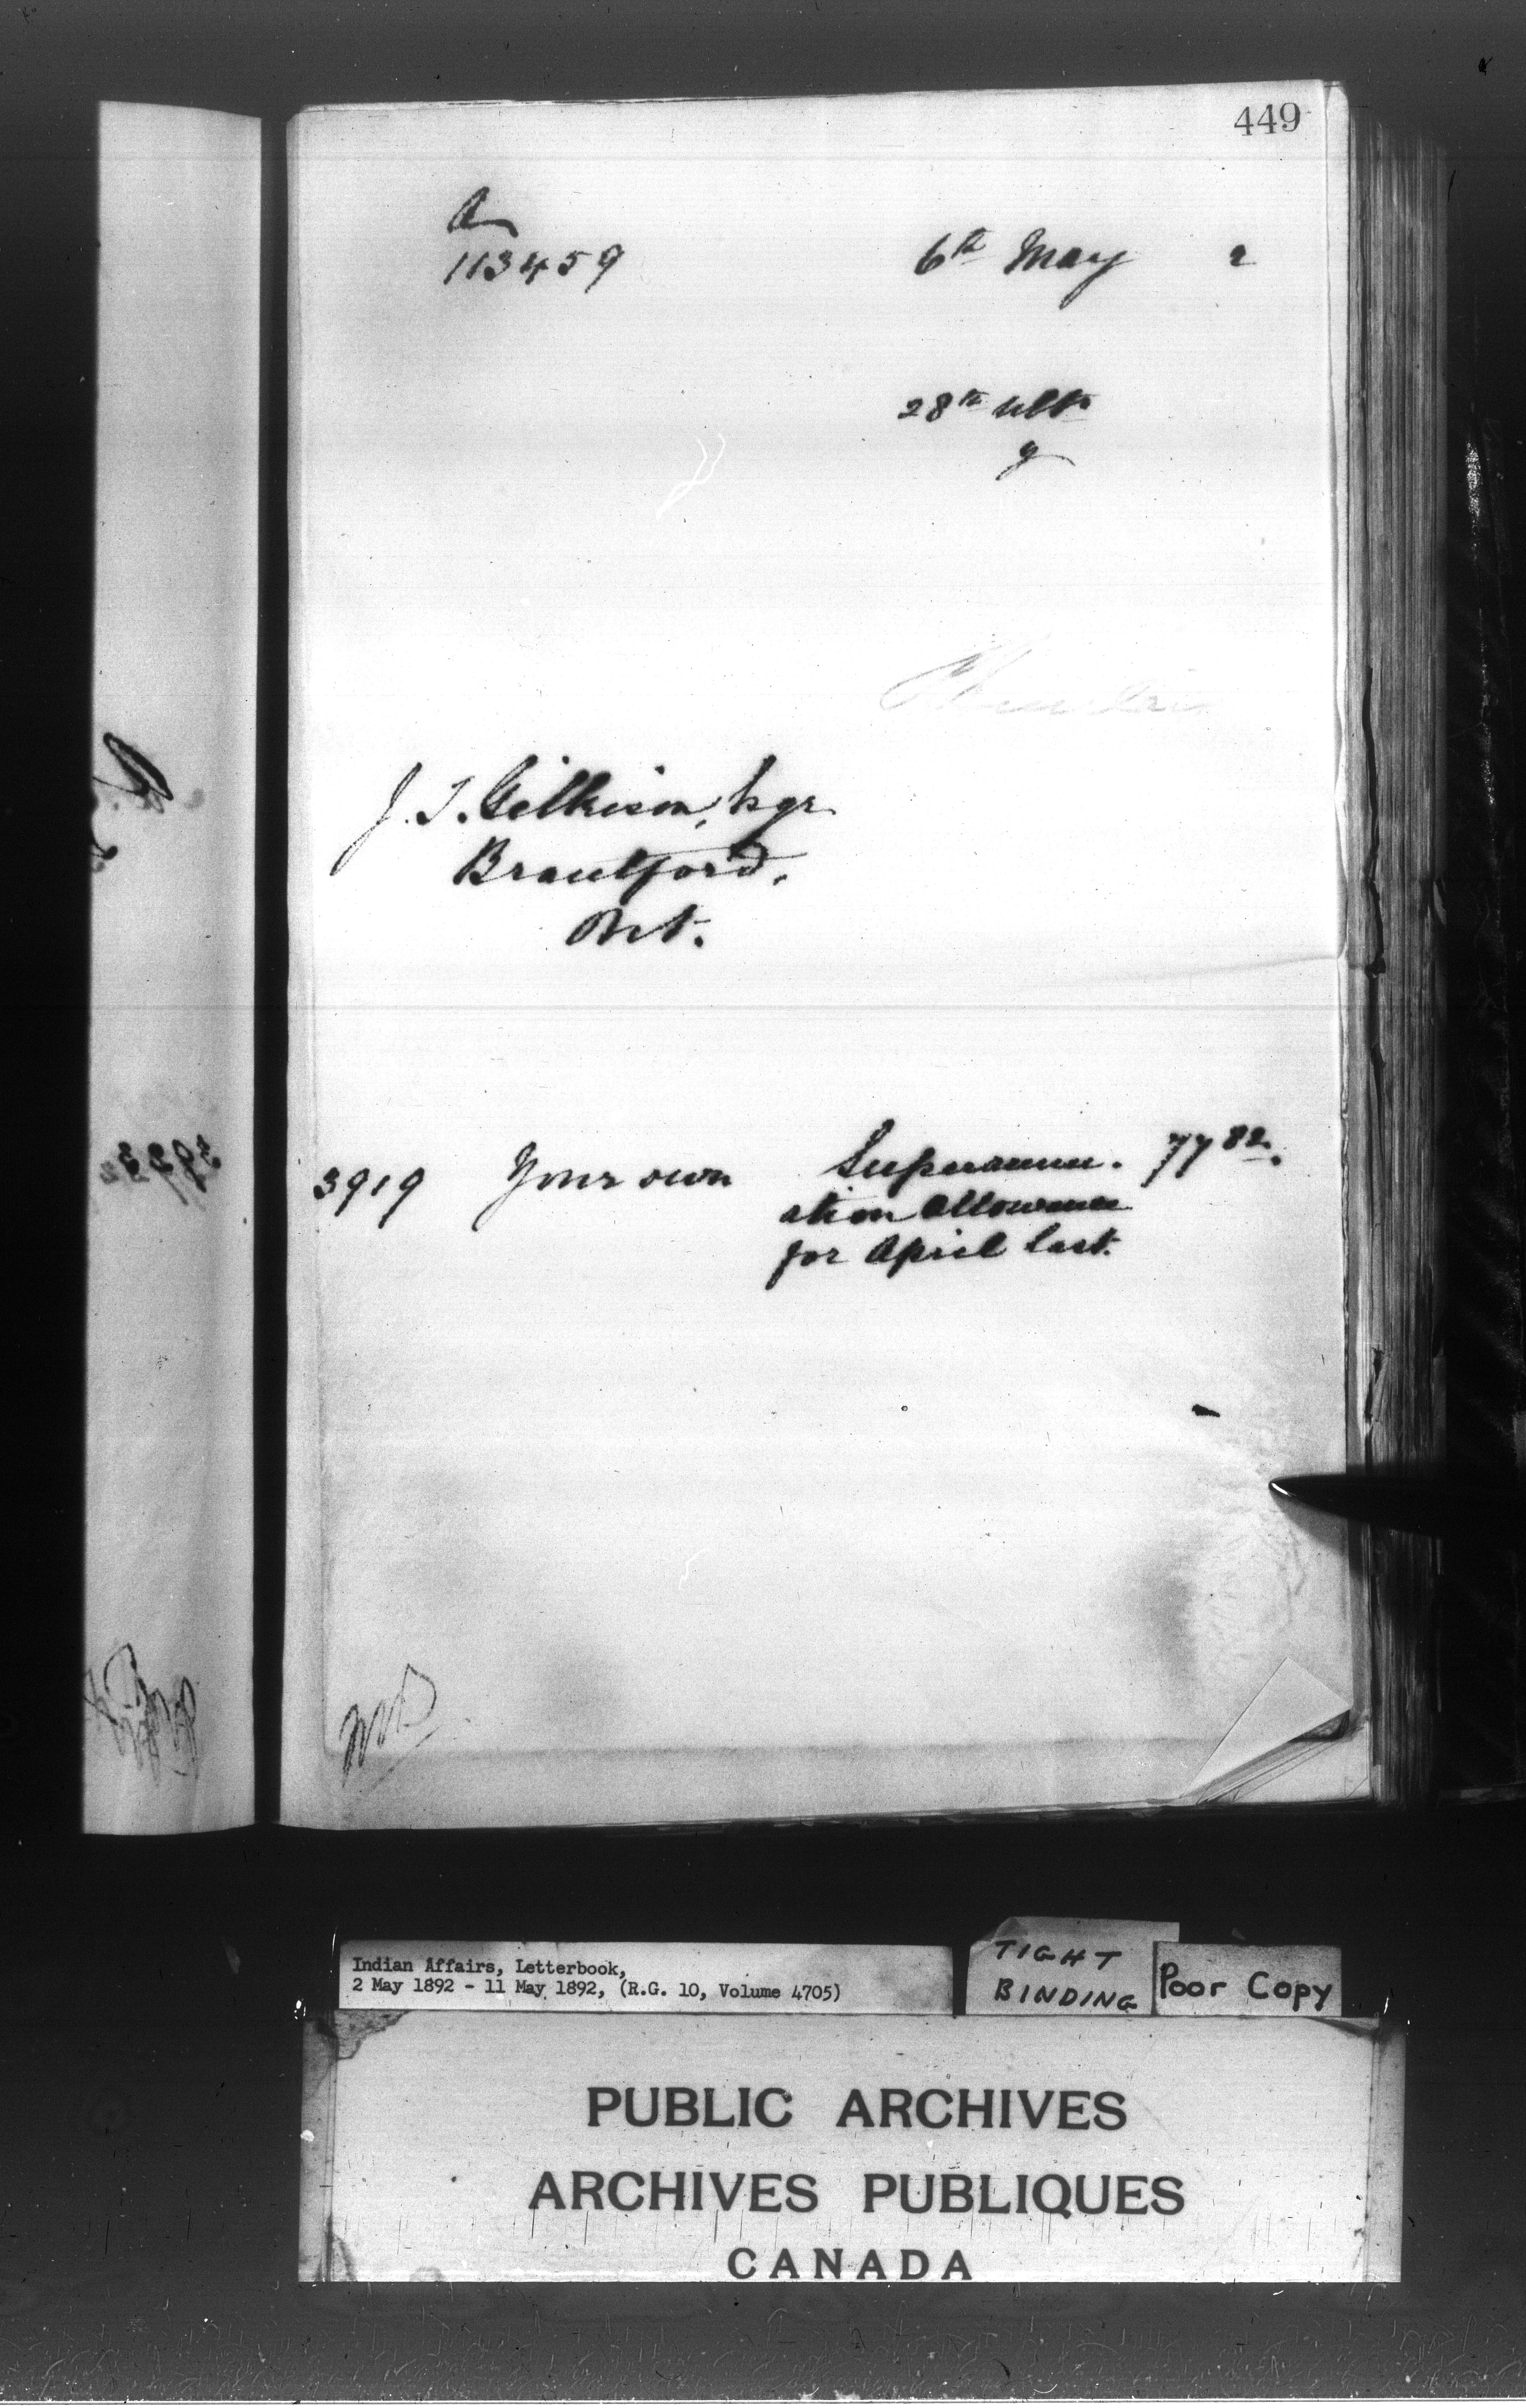 449
A
113459
6th May 2
28th ulto
y
J. T. Gilkison, Esqr
Brantford,
Ont.
3919 Your own Superannu- 77 82.
ation Allowance
for April last.
Indian Affairs, Letterbook,
2 May 1892 - 11 May 1892, (R.G. 10, Volume 4705)
TIGHT
BINDING
Poor Copy
PUBLIC ARCHIVES
ARCHIVES PUBLIQUES
CANADA